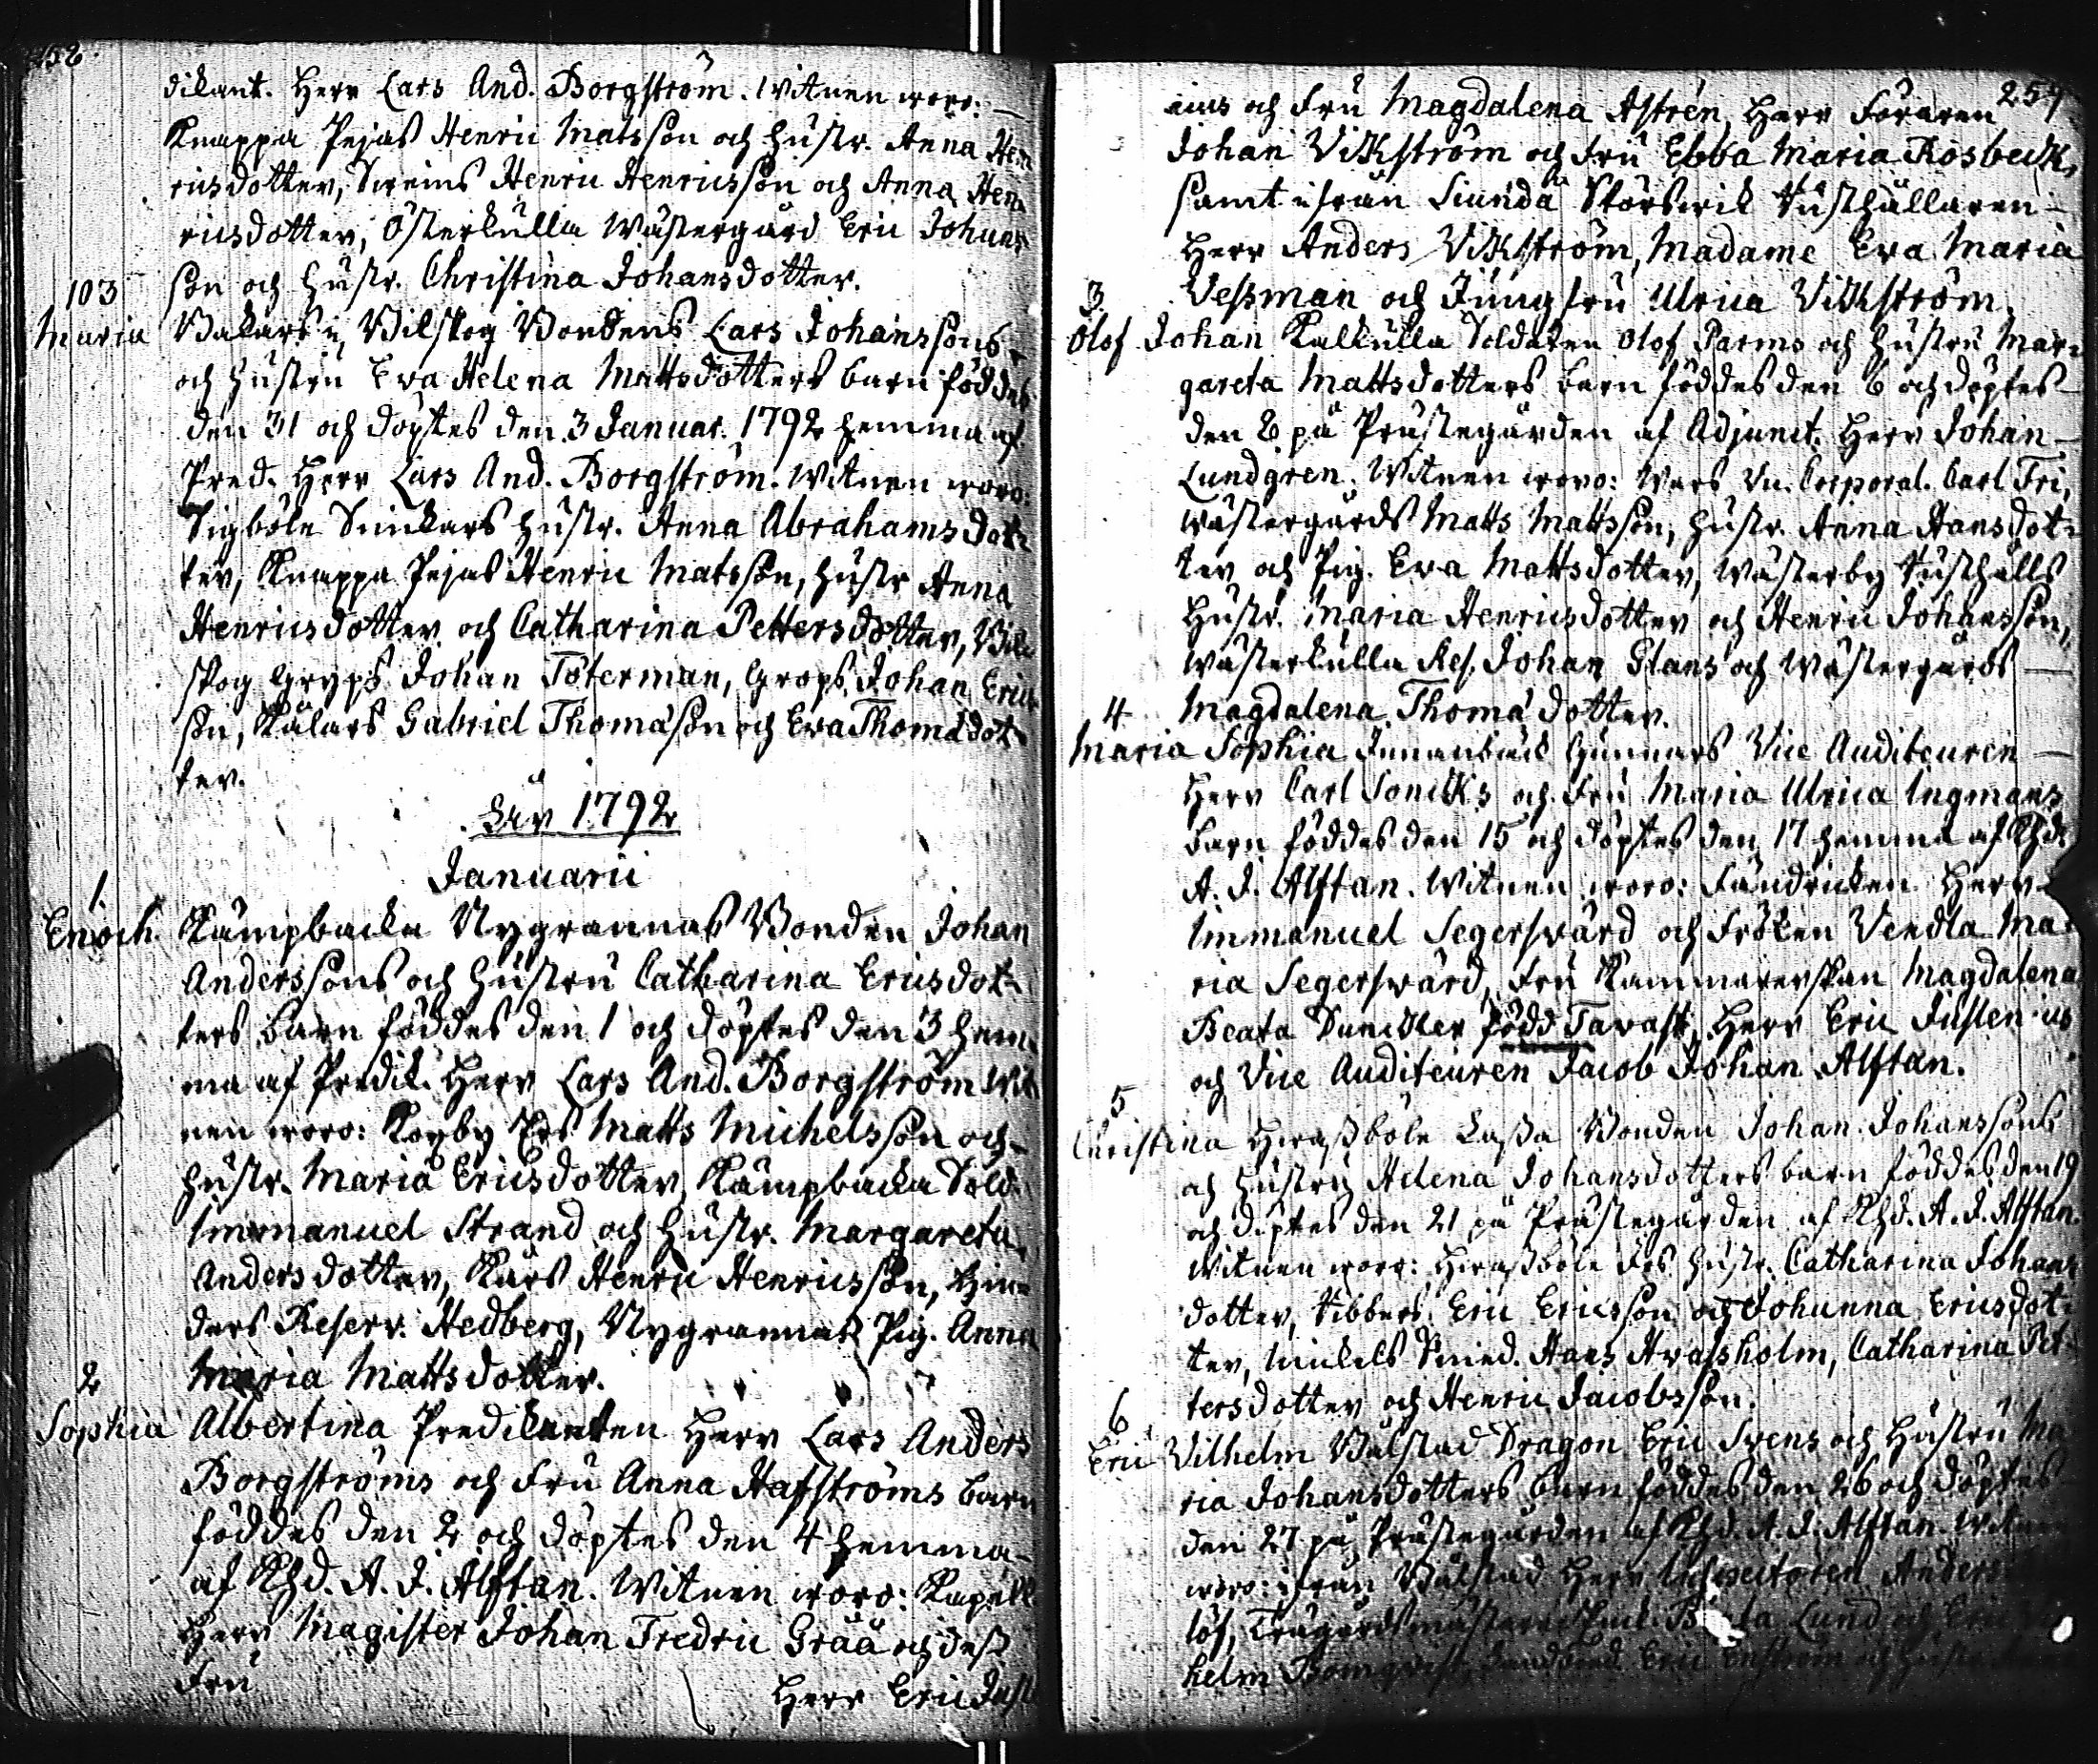 dikant. Herr Lars And. Borgström. Witnen woro:
Knappa Pejas Henric Matsson och hustr. Anna Hen
ricsdotter, Sveins Henric Henricsson och Anna Hen
ricsdotter, Österkulla Wästergård Eric Johans
103
son och hustr. Christina Johansdotter.
Maria Bakars i Vilskog Bondens Lars Johanssons
och hustru Eva Helena Mattsdotters barn föddes
den 31 och döptes den 3 Januar. 1792 hemma af
Pred. Herr Lars And. Borgström. Witnen woro:
Sigböle Snickars hustr. Anna Abrahamsdot
ter, Knappa Pejas Henric Matsson, hustr Anna
Henricsdotter och Catharina Pettersdotter, Vil
skog Gryps Johan Töterman, Grops Johan Erics
son, Kälars Gabriel Thomasson och Eva Thomadot
ter.
År 1792
Januarii
1.
Enoch. Kämpbacka Nygrannas Bonden Johan
Anderssons och hustru Catharina Ericsdot
ters barn föddes den 1 och döptes den 3 hem
ma af Predik. Herr Lars And. Borgström Wit
nen woro: Matts Michelsson och
hustr. Maria Ericsdotter, Kämpbacka Sold.
Immanuel Strand och hustr. Margareta
Andersdotter, Kärs Henric Henricsson, Hin
ders Reserv. Hedberg, Nygrannas Pig. Anna
2
Maria Mattsdotter.
Sophia Albertina Predikanten Herr Lars Anders
Borgströms och Fru Anna Hafströms barn
föddes den 2 och döptes den 4 hemma
af Khd. A. J. Alftan. Witnen woro: Kapell.
Herr Magister Johan Fredric Gråå och dess
Fru
Herr Eric Just
257
eius och Fru Magdalena Astrén, Herr Föraren
Johan Vikström och Fru Ebba Maria Rosbeck,
samt ifrån Siundå Störsvik Rusthållaren
Herr Anders Vikström, Madame Eva Maria
3.
Vessman och Jungfru Ulrica Vikström.
Olof Johan Kalkulla Soldaten Olof Parms och hustru Mar
gareta Mattsdotters barn föddes den 6 och döptes
den 8 på Prästegården af Adjunct. Herr Johan
Lundgren. Witnen woro: Wars Vic. Corporal. Carl Fri,
Wästergårds Matts Mattsson, hustr. Anna Hansdot
ter och Pig. Eva Mattsdotter, Wästerby Rusthålls
Hustr. Maria Henricsdotter och Henric Johansson,
Wästerkulla Res. Johan Glans och Wästergårds
4
Magdalena Thomadotter.
Maria Sophia Innanbäck Gunnars Vice Auditeuren
Herr Carl Soncks och Fru Maria Ulrica Ingmans
barn föddes den 15 och döptes den 17 hemma af Khd.
A. J. Alftan. Witnen woro: Fändricken Herr
Immanuel Segersvärd och Fröken Vendla Ma
ria Segersvärd, Fru Kammarerskan Magdalena
Beata Dunckler född Tavast, Herr Eric Juslenius
och Vice Auditeuren Jacob Johan Alftan.
5
Christina Hirassböle Lassa Bonden Johan Johanssons
och hustru Helena Johansdotters barn föddes den 19
och döptes den 21 på Prästegården af Khd. A. J. Alftan.
Witnen woro: Hirassböle hustr. Catharina Johans
dotter, Tibbers Eric Ericsson och Johanna Ericsdot
ter, Smed. Hans Hvassholm, Catharina Pet
tersdotter och Henric Jacobsson.
6
Eric Vilhelm Bålstad Dragon Eric Svens och hustru Ma
ria Johansdotters barn föddes den 26 och döptes
den 27 på Prästegården af Khd. A. J. Alftan. Witnen
woro: ifrån Bålstad Herr Inspectoren Anders
löf, Trägårdsmästare Lund och
helm Blomqvist, Eric Enström och hustr.